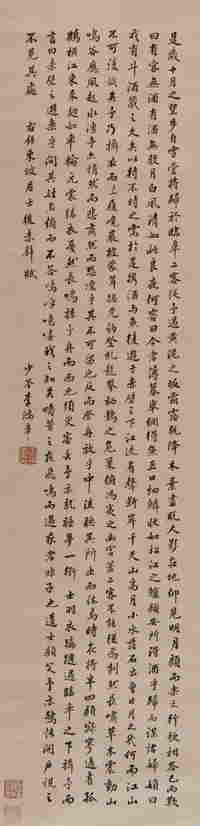 是歲十月之望步自雪堂將歸於臨皐二客從予過黃泥之坂霜露既降木葉盡脫人影在地仰見明月顧而樂之行歌相答已而歎
曰有客無酒有酒無殽月白風清如此良夜何客曰今者薄暮舉網得魚巨口細鱗狀如松江之鱸顧安所得酒乎歸而謀諸婦婦曰
我有斗酒藏之久矣以待不時之需於是攜酒與魚復遊於赤壁之下江流有聲斷岸千尺山高月小水落石出曾日月之幾何而江山
不可復識矣予乃攝衣而上履巉巖披蒙茸踞虎豹登虬龍攀棲鶻之危巢俯馮夷之幽宮蓋二客不能從焉劃然長嘯草木震動山
鳴谷應風起水湧予亦悄然而悲肅然而恐凜乎其不可留也反而登舟放乎中流聽其所止而休焉時夜將半四顧寂寥適有孤
鶴橫江東來翅如車輪元裳縞衣戛然長鳴掠予舟而西也須臾客去予亦就睡夢一道士羽衣蹁躚過臨皐之下揖予而
言曰赤壁之遊樂乎問其姓名俛而不答嗚呼噫嘻我知之矣疇昔之夜飛鳴而過我者非子也耶道士顧笑予亦驚悟開戶視之
不見其處 右錄東坡居士後赤壁賦
少荃李鴻章